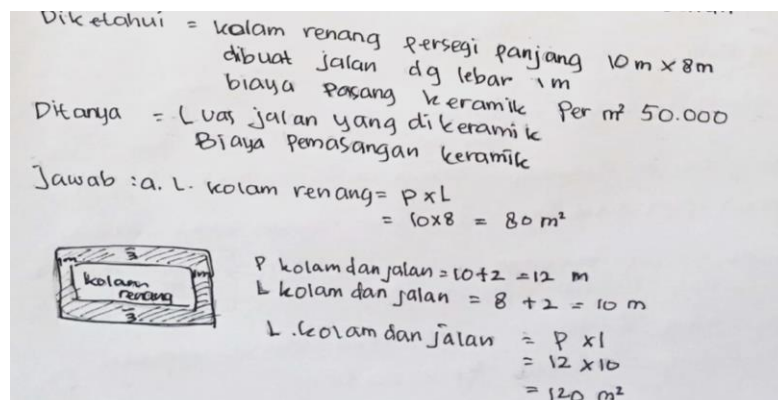 Diketahui = kolam renang persegi panjang 10 m x 8 m
dibuat jalan dg lebar 1 m
biaya pasang keramik Per m² 50.000
Ditanya = Luas jalan yang dikeramik
Biaya pemasangan keramik
Jawab : a. L. kolam renang = P x L
= 10x8 = 80 m²
kolam renang
P kolam dan jalan = 10+2 = 12 m
L kolam dan jalan = 8 + 2 = 10 m
L. kolam dan jalan = P x l
= 12 x 10
= 120 m²